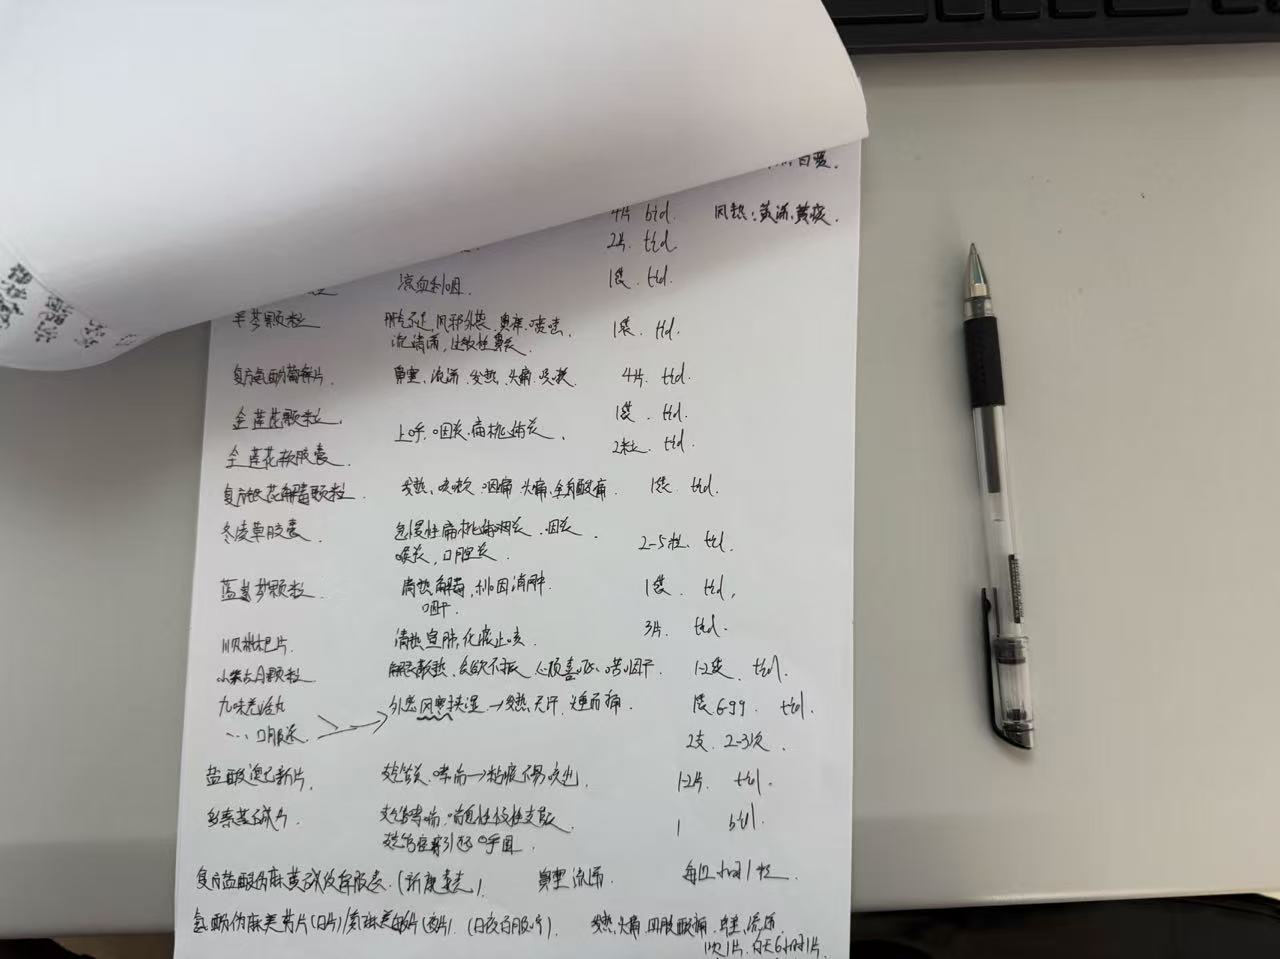 白痰.
4片 bid. 风热:黄涕、黄痰.
2片. tid.
凉血利咽. 1袋. tid.
辛芩颗粒 肺气不足,风邪外袭.鼻痒.喷嚏, 1袋. tid.
流清涕,过敏性鼻炎.
复方氨酚葡锌片. 鼻塞、流涕.发热.头痛.咳嗽 4片. tid.
金莲花颗粒. 1袋. tid.
上呼.咽炎.扁桃体炎.
金莲花软胶囊. 2粒. tid.
复方银花解毒颗粒. 发热、咳嗽.咽痛.头痛.全身酸痛. 1袋. tid.
冬凌草胶囊 急慢性扁桃体咽炎.咽炎.
喉炎,口腔炎. 2-5粒. tid.
蓝芩颗粒 清热解毒,利咽消肿. 1袋. tid.
咽干.
川贝枇杷片. 清热宣肺,化痰止咳. 3片. tid.
小柴胡颗粒 解表散热、食欲不振、心烦喜呕、口苦咽干. 1-2袋. tid.
九味羌活丸 外感风寒挟湿.→发热.无汗. 痛. 6-9g. tid.
… 口服液 2支. 2-3次.
盐酸溴己新片. 支气管炎.哮喘→粘痰不易咳出. 1-2片. tid.
多索茶碱片. 支气管哮喘.喘息性慢性支气管炎.
1 bid.
支气管痉挛引起呼吸困难.
复方盐酸伪麻黄碱缓释胶囊.(新康泰克) 鼻塞.流涕. 每12小时1粒.
氨酚伪麻美芬片(日片)/氨麻美敏片(夜片). (日夜百服咛). 发热.头痛.四肢酸痛.鼻塞.流涕.
1次1片.白天6小时1片.